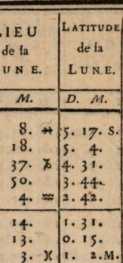 LIEU LATITUDE
de la de la
UNE. LUNE.
M. D. M.
8. ♒ 5. 17. S.
18. 5. 4.
37. 4. 31.
50. 3. 44.
4. ♒ 2. 42.
14. 1. 31.
13. 0. 15.
3. 1. 2. M.